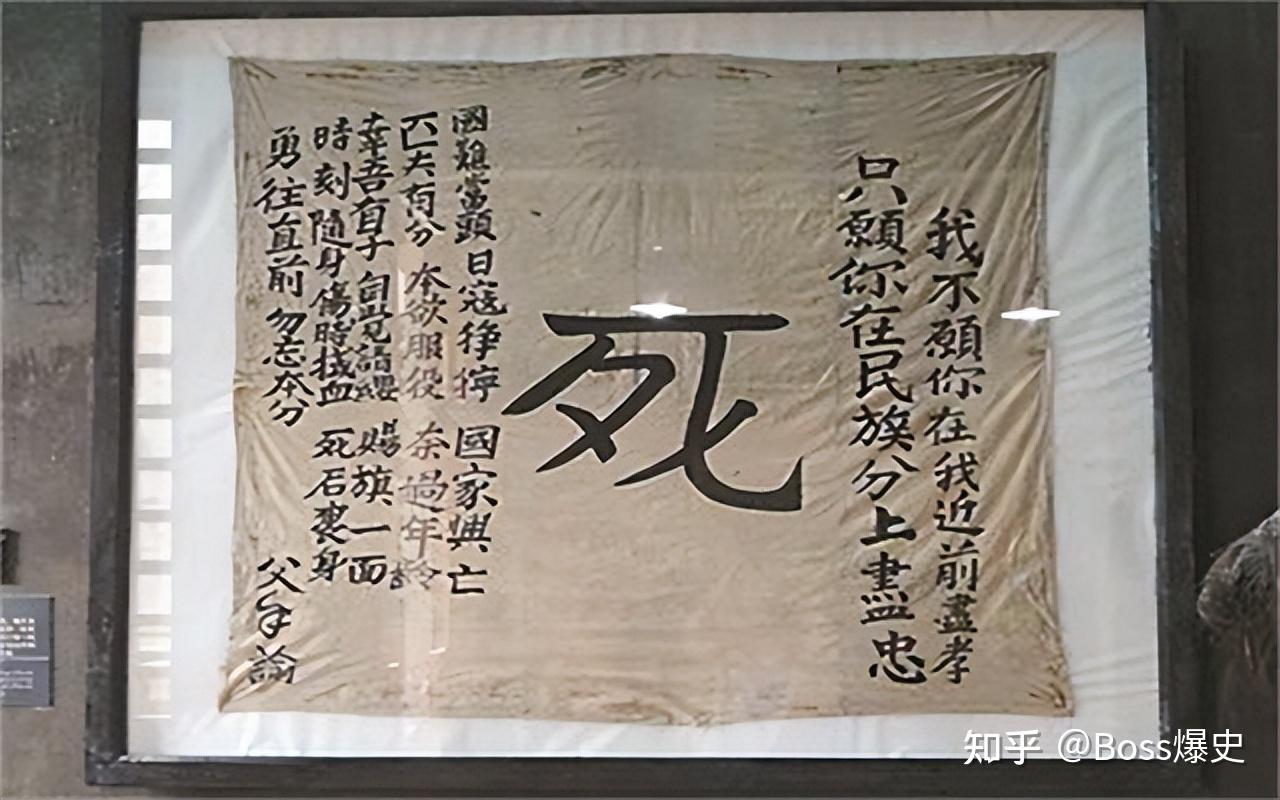 我不願你在我近前盡孝
只願你在民族分上盡忠
死
國難當頭 日寇猙獰 國家興亡
匹夫有分 本欲服役 奈過年齡
幸吾有子 自覺請纓 賜旗一面
時刻隨身 傷時拭血 死后裹身
勇往直前 勿忘本分
父手諭
知乎 @Boss爆史